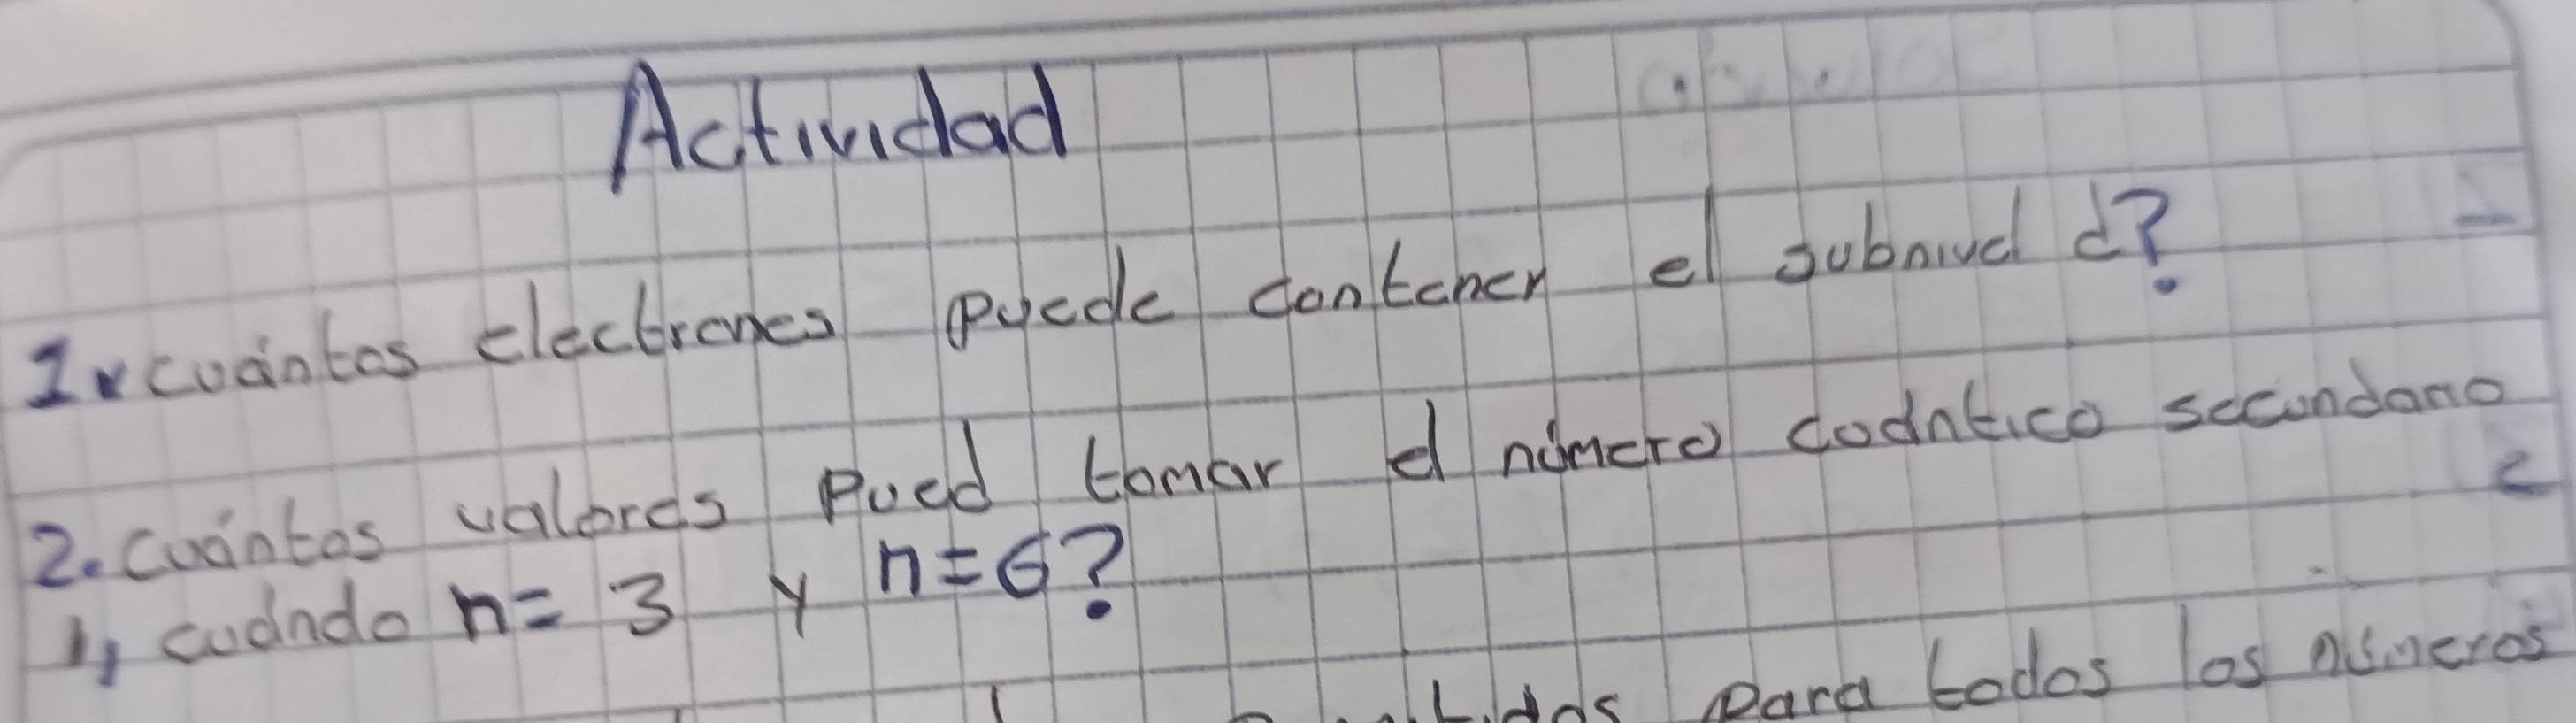 Actividad
1. cuántos electrones puede contener el subnivel d?
2. cuántos valores pued tomar el número cuántico secundario
l, cuando n= 3 y n=6?
para todos los números